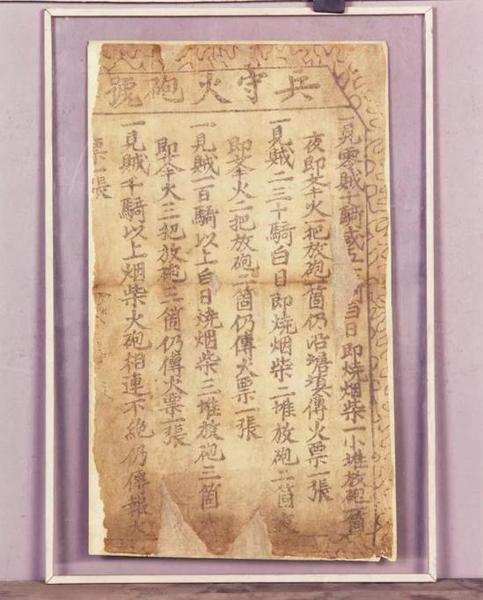 兵守火砲號
一見零賊十騎或 白日即燒烟柴一小堆放砲一箇
夜即苓火一把放砲一箇仍沿塘墩傳火票一張
一見賊二三十騎白日即燒烟柴二堆放砲二箇夜
即苓火二把放砲二箇仍傳火票一張
一見賊一百騎以上白日燒烟柴三堆放砲三箇
即苓火三把放砲三箇仍傳火票一張
一見賊千騎以上烟柴火砲相連不絕仍傳報火
票一張